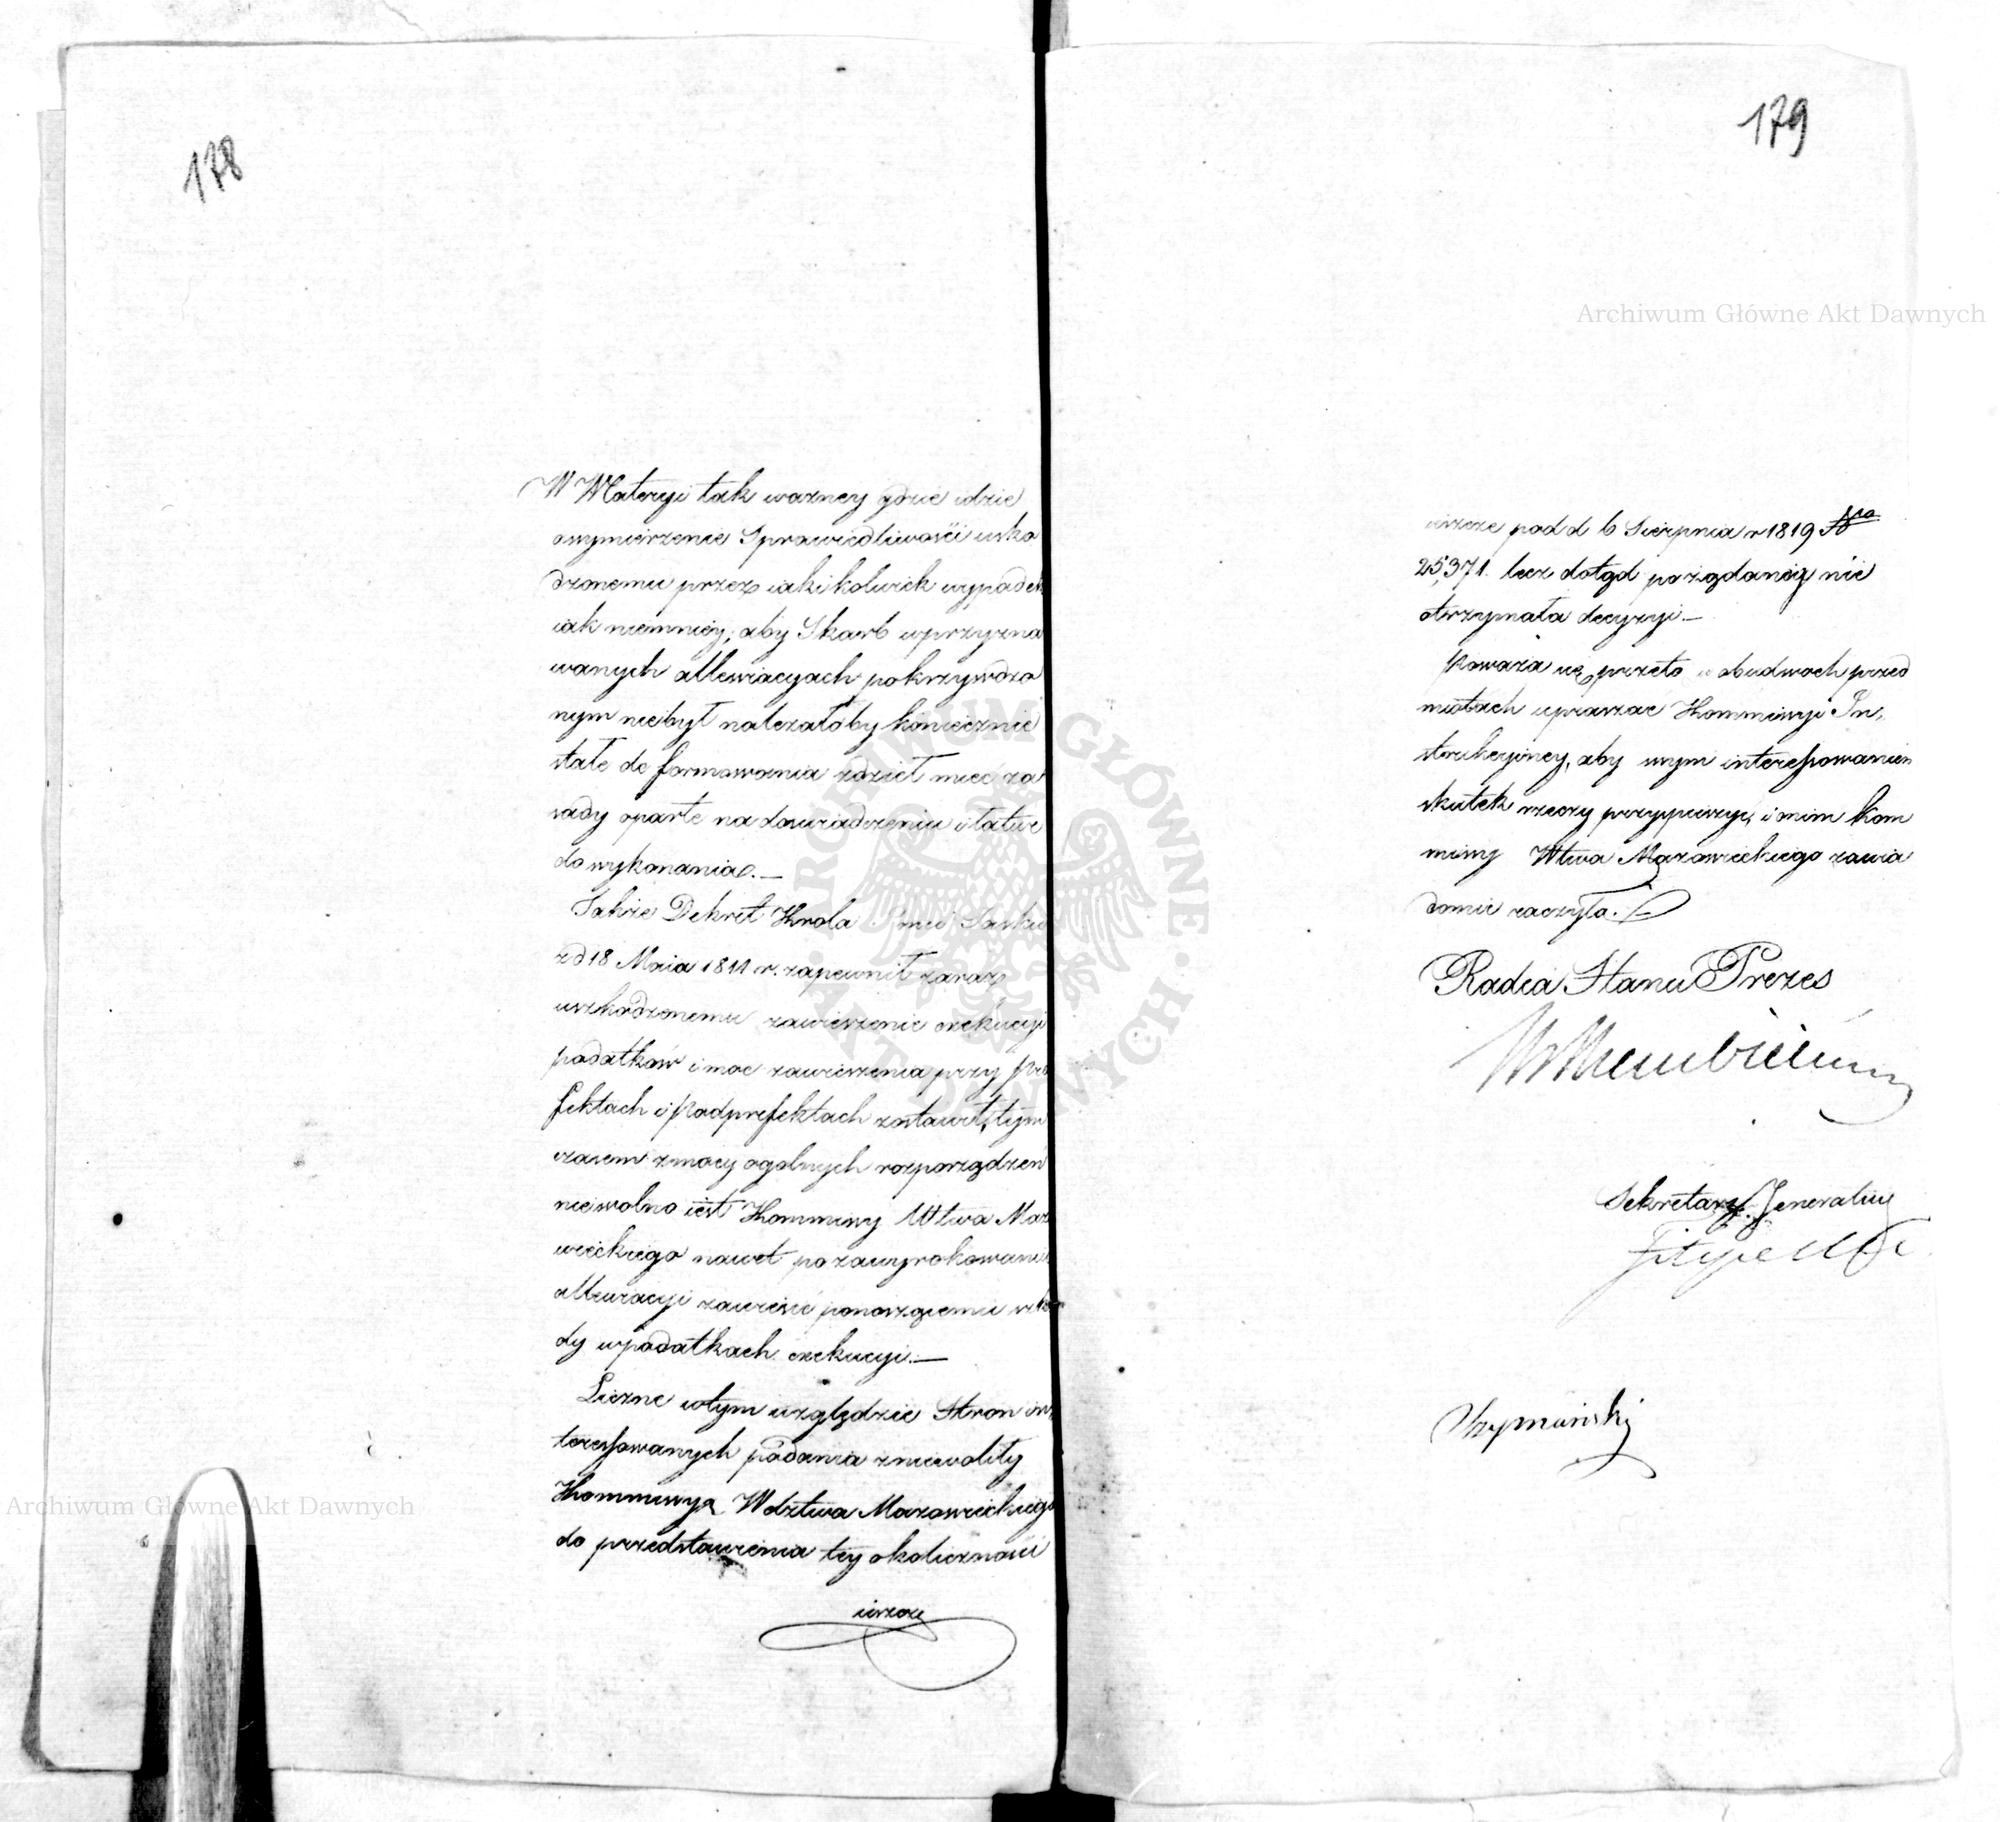 178
W Materyi tak wazney gdzie idzie
o wymierzenie Sprawiedliwości uszko
dzonemu przez iaki kolwiek wypadek
iak niemniey, aby Skarb w przyzna
wanych allewiacyach pokrzywdzo
nym niebył należałoby koniecznie
stałe do formowania śledzieł mieć za
sady oparte na doswiadczeniu i łatwe
do wykonania. —
Także Dekret Krola Saski
z d 18 Maia 1811 r. zapewnił zaraz
uszkodzonemu zawieszenie exekucyi
podatkow i moc zawieszenia przy Pre
fektach i Podprefektach zostawił, tym
czasem z mocy ogolnych rozporządzeń
niewolno iest Kommissyi Wtwa Mazo
wieckiego nawet po zawyrokowaniu
allewiacyi zawiesić ponoszącemu szko
dy w podatkach exekucyi. —
Liczne w tym względzie Stron in
teressowanych podania zniewoliły
Kommissyą Wdztwa Mazowieckiego
do przedstawienia tey okoliczności
ieszcze
179
ieszcze pod d 6 Sierpnia r 1819 Nro
25,371. lecz dotąd pożądaney nie
otrzymała decyzyi. —
Poważa się przeto w obudwoch przed
miotach upraszać Kommissyi In,
strukcyiney, aby swym interessowaniem
skutek rzeczy przyspieszyć, i o nim Kom
missyę Wtwa Mazowieckiego zawia
domić raczyła.
Radca Stanu Prezes
Sekretarz Jeneralny
Szymański
Archiwum Główne Akt Dawnych
Archiwum Główne Akt Dawnych
ARCHIWUM GŁÓWNE AKT DAWNYCH